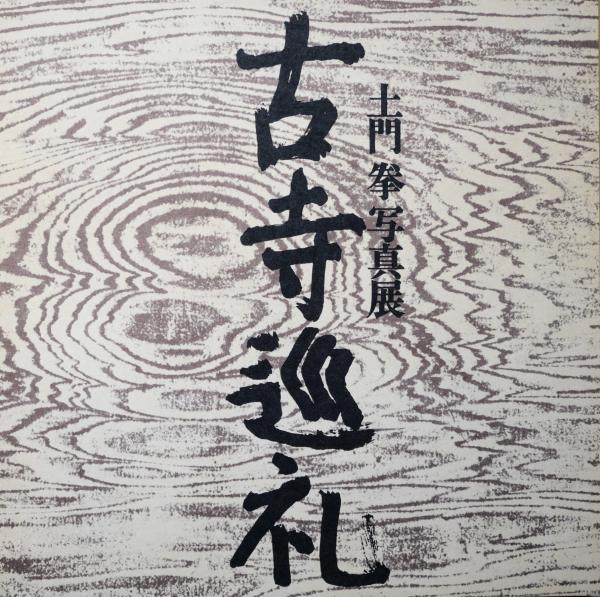 土門 拳 写真展
古寺巡礼